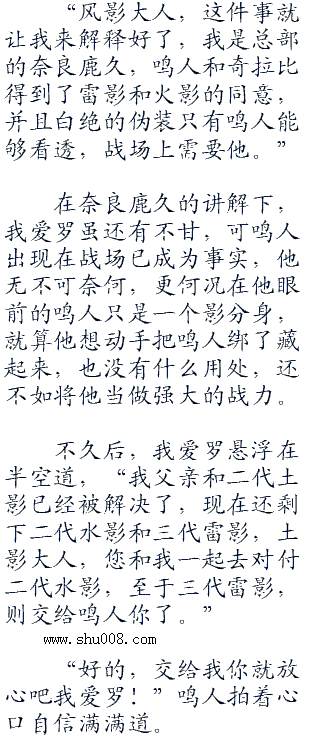 “风影大人，这件事就
让我来解释好了，我是总部
的奈良鹿久，鸣人和奇拉比
得到了雷影和火影的同意，
并且白绝的伪装只有鸣人能
够看透，战场上需要他。”
在奈良鹿久的讲解下，
我爱罗虽还有不甘，可鸣人
出现在战场已成为事实，他
无不可奈何，更何况在他眼
前的鸣人只是一个影分身，
就算他想动手把鸣人绑了藏
起来，也没有什么用处，还
不如将他当做强大的战力。
不久后，我爱罗悬浮在
半空道，“我父亲和二代土
影已经被解决了，现在还剩
下二代水影和三代雷影，土
影大人，您和我一起去对付
二代水影，至于三代雷影，
则交给鸣人你了。”
www.shu008.com
“好的，交给我你就放
心吧我爱罗！”鸣人拍着心
口自信满满道。